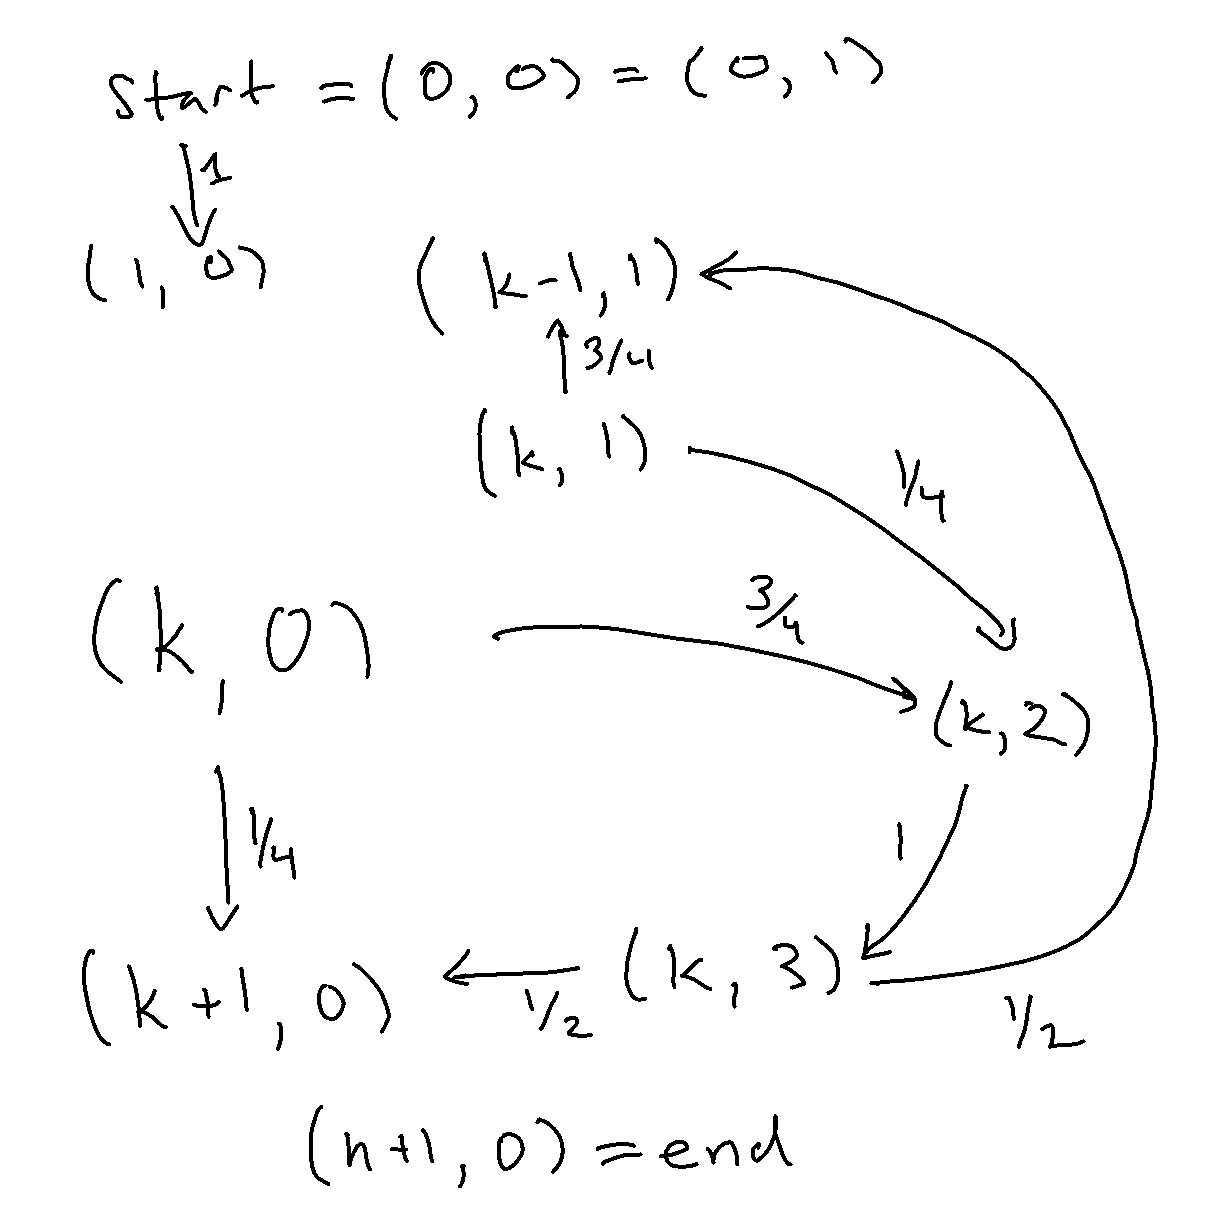 start = (0, 0) = (0, 1)
1
(1, 0)
(k-1, 1)
3/4
(k, 1)
1/4
(k, 0)
3/4
(k, 2)
1/4
1
(k+1, 0)
1/2
(k, 3)
1/2
(n+1, 0) = end